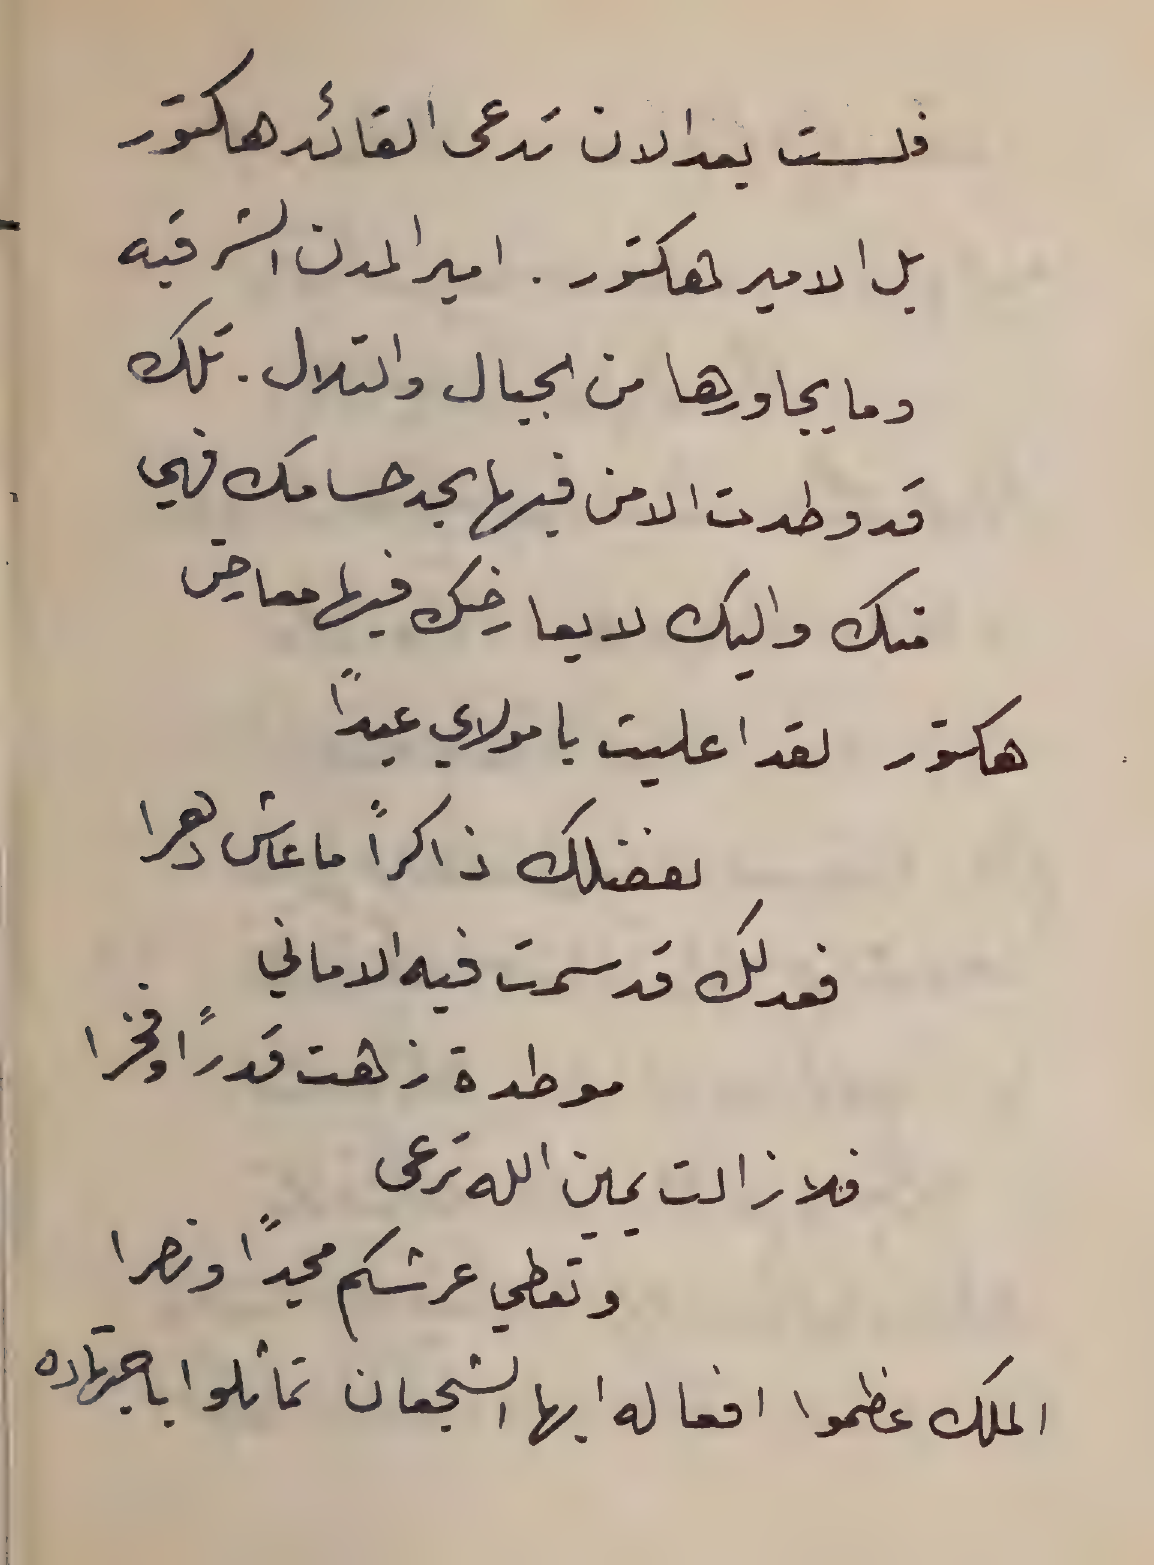 فلست بعد الان تدعى القائد هكتور
بل الامير هكتور . امير المدن الشرقيه
وما يجاورها من الجبال والتلال . تلك
قد وطدت الامن فيها بحد حسامك فهي
منك واليك لا يعارضك فيها معارض
هكتور لقد اعليت يا مولاي عبداً
لفضلك ذاكراً ما عاش دهرا
فعدلك قد سمت فيه الاماني
موطدة زهت قدراً وفخرا
فلا زالت يمين الله ترعى
وتعطي عرشكم مجداً ونصرا
الملك عظموا افعاله ايها الشجعان تماثلوا باجتهاده